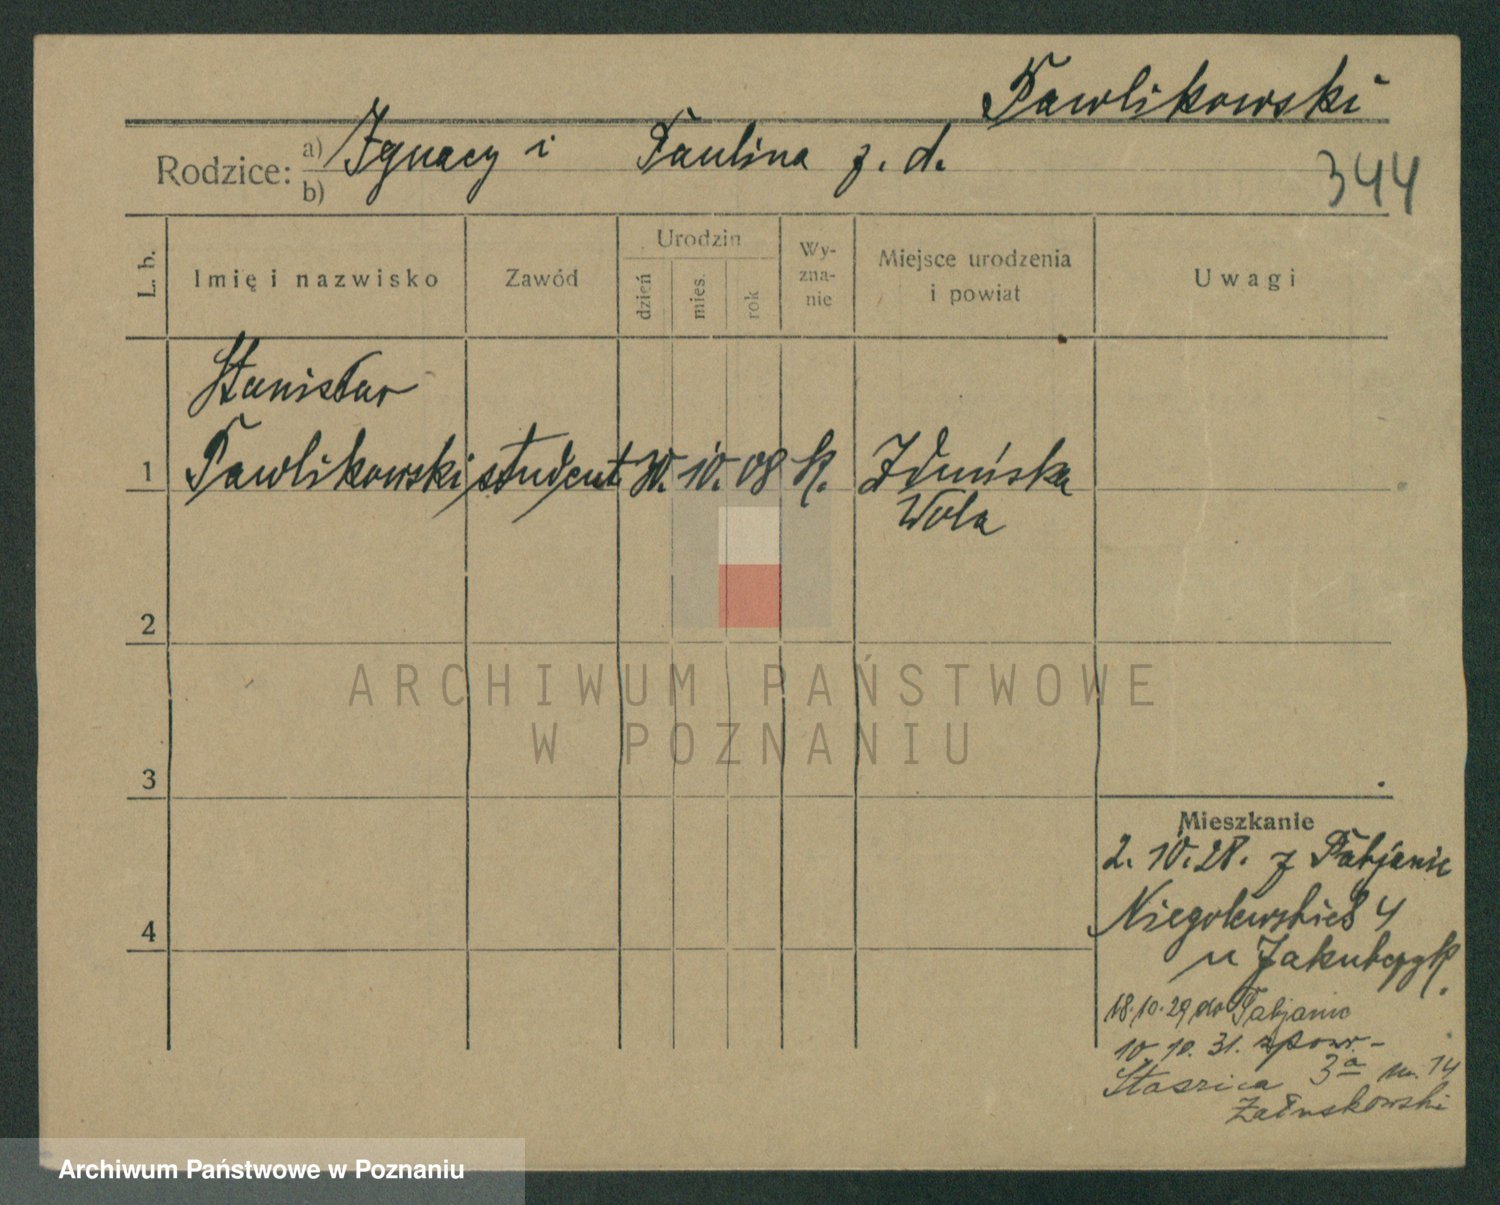 Pawlikowski
Rodzice: a) Ignacy i Paulina z. d.
b)
344
L. b.
Imię i nazwisko
Zawód
Urodzin
dzień
mies.
rok
Wy-
zna-
nie
Miejsce urodzenia
i powiat
Uwagi
Stanisław
1 Pawlikowski student 10. 08 k. Zduńska
Wola
2
3
4
Mieszkanie
2. 10. 28. z Pabjanic
Niegolewskich 4
u Jakubczyk
18.10.29 do Pabjanic
10. 10. 31. z pow. -
Staszica 3a m. 14
Załuskowski
ARCHIWUM PAŃSTWOWE
W POZNANIU
Archiwum Państwowe w Poznaniu